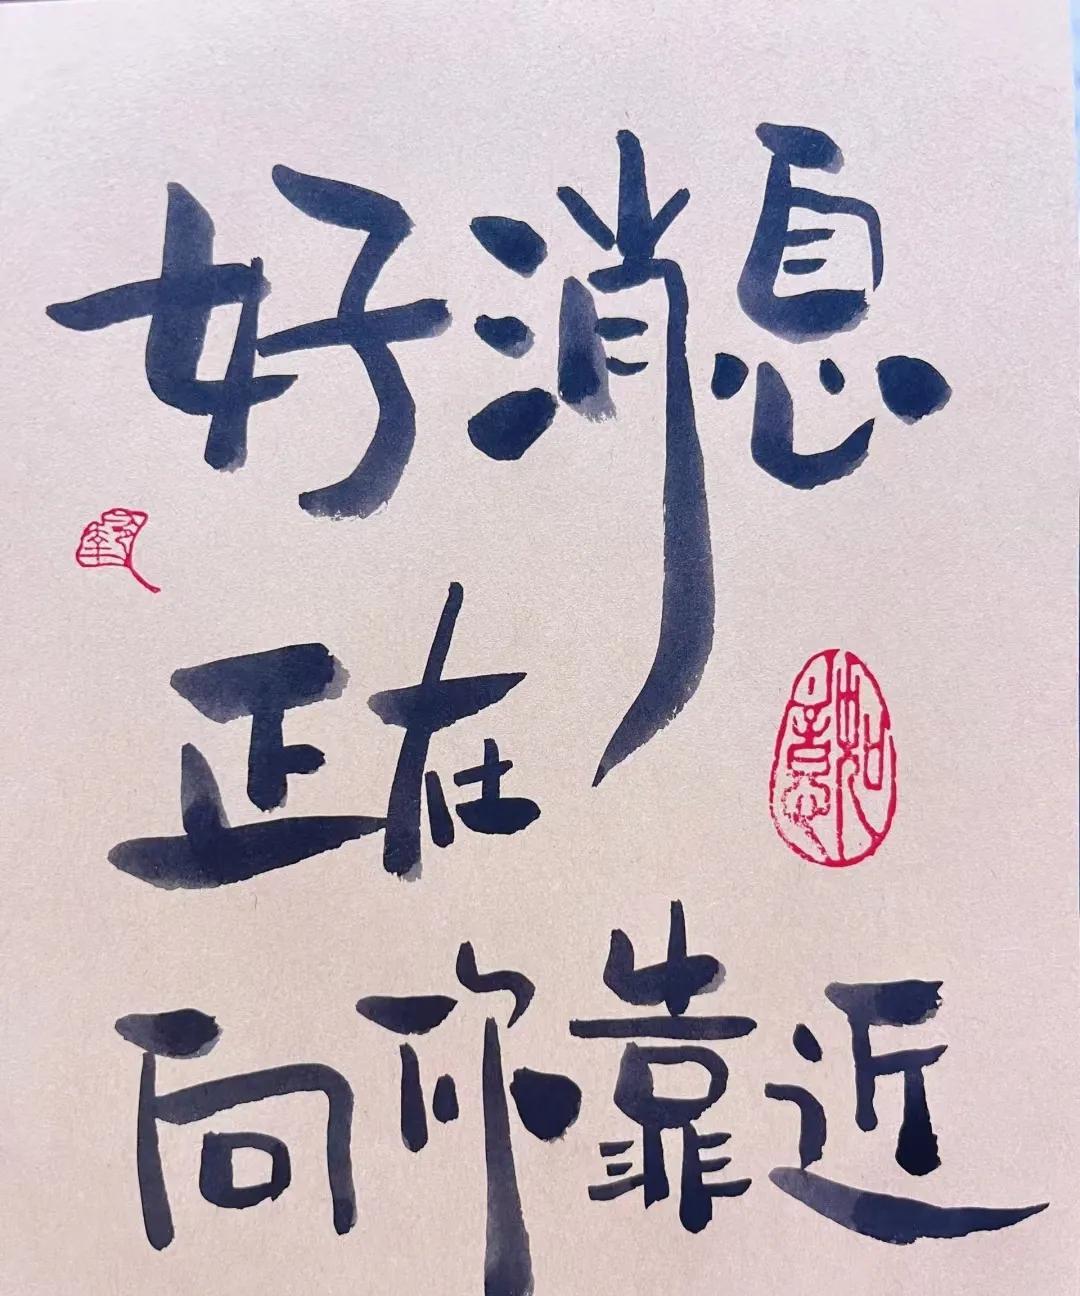 好消息
正在
如意
向你靠近